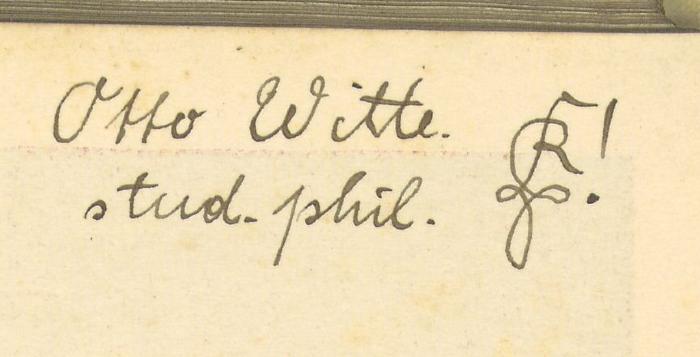 Otto Witte.
stud. phil.